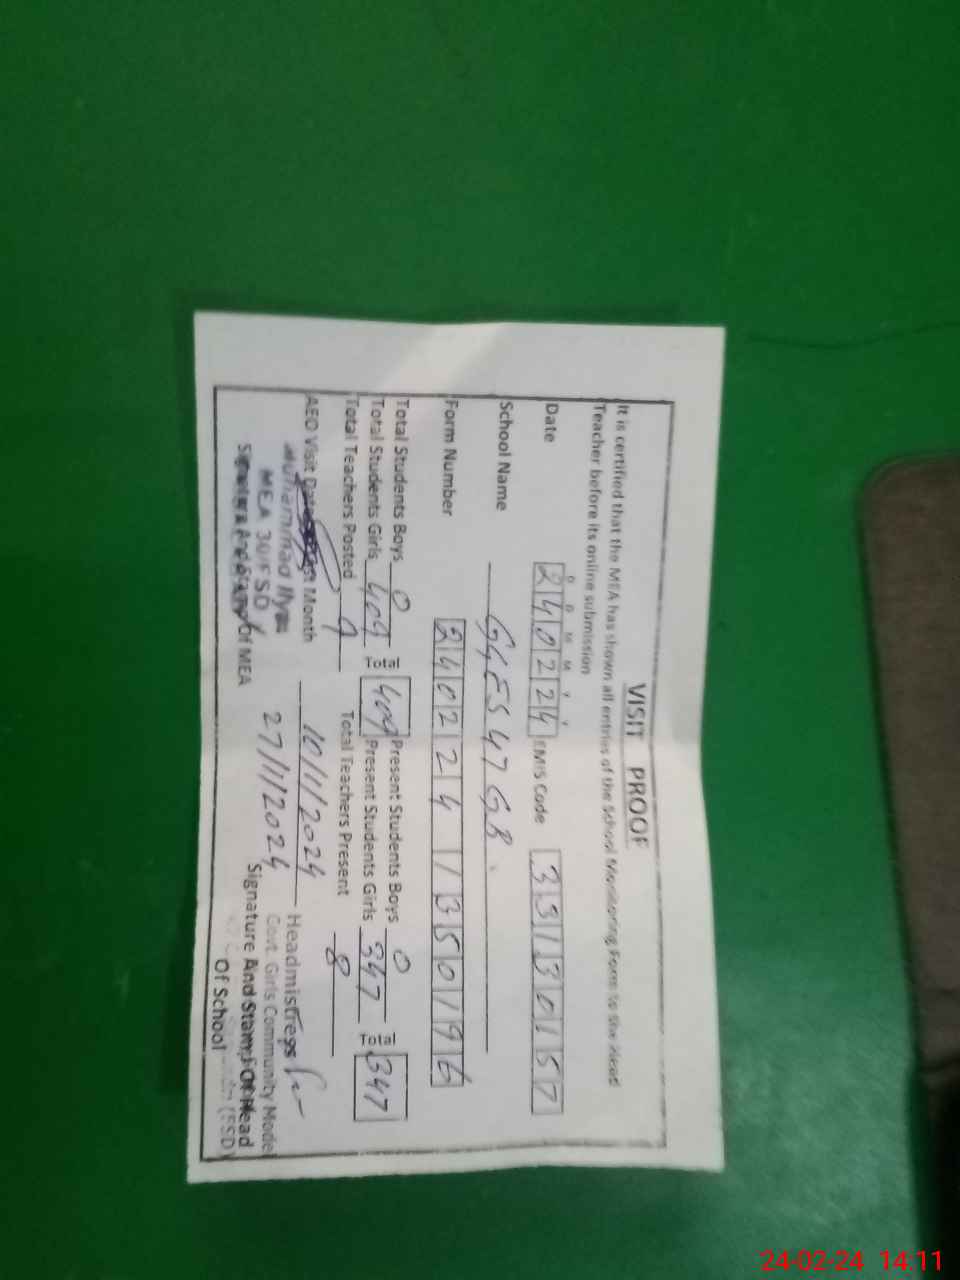 VISIT PROOF
It is certified that the MEA has shown all entries of the School Monitoring Form to the Head
Teacher before its online submission
D D M M Y Y
Date 240224 EMIS Code 33130157
School Name GGES 47 GB.
Form Number 240224 1350196
Total Students Boys 0 Present Students Boys 0
Total Students Girls 409 409 Present Students Girls 347 347
Total Teachers Posted 9 Total Teachers Present 8
AEO Visit Month 10/1/2024
27/1/2024
Muhammad Ilyas
MEA 30/FSD
Signature And Stamp Of MEA
Headmistress
Govt. Girls Community Model
Signature And Stamp Of Head
Of School
(FSD)
24-02-24 14:11